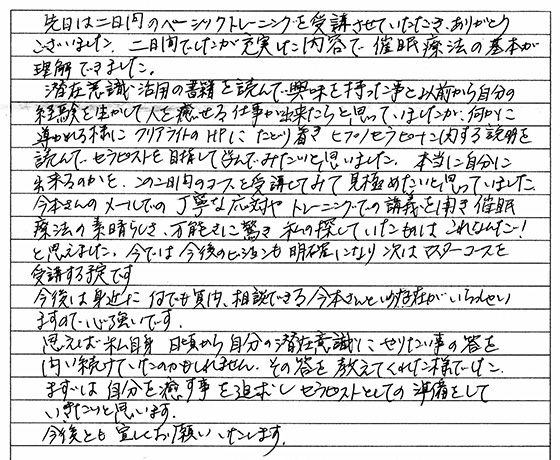 先日は二日間のベーシックトレーニングを受講させていただき、ありがとう
ございました。二日間でしたが充実した内容で、催眠療法の基本が
理解できました。
潜在意識活用の書籍を読んで、興味を持った事と以前から自分の
経験を生かして人を癒せる仕事が出来たらと思っていましたが、何かに
導かれる様に クリアライトのHPに たどり着き ヒプノセラピーに関する説明を
読んで、セラピストを目指して学んでみたいと思いました。本当に自分に
出来るのかと、この二日間のコースを受講してみて 見極めたいと思っていました。
今本さんのメールでの 丁寧な応対や トレーニングでの講義を聞き 催眠
療法の素晴らしさ、万能さに驚き 私の探していたものは これなんだ！
と思えました。今では 今後のビジョンも 明確になり 次は マスターコースを
受講する予定です
今後は身近に 何でも質問、相談できる 今本さんという存在がいらっしゃい
ますので、心強いです。
思えば 私自身 日頃から 自分の潜在意識に やりたい事の答を
問い続けていたのかもしれません。その答を 教えてくれた様でした。
まずは 自分を癒す事を追求し セラピストとしての 準備をして
いきたいと思います。
今後とも 宜しくお願いいたします。